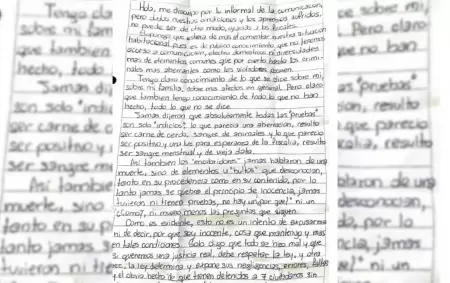 Hola, me disculpo por lo informal de la comunicación,
pero dadas nuestras condiciones y los apremios sufridos,
no puede ser de otro modo, gracias a los fiscales.
Supongo que estará de más el comentar nuestra situación
habitacional pues es de público conocimiento, que no tenemos
acceso a comunicación, efectos domésticos ni
más de elementos comunes que por cierto hasta los crimi-
nales más aberrantes como los violadores poseen.
Tengo claro conocimiento de lo que se dice sobre mí,
sobre mi familia, sobre mis afectos en general. Pero claro
que también tengo conocimiento de todo lo que no han
hecho, todo lo que no se dice.
Jamás dijeron que absolutamente todas las "pruebas"
son solo "indicios", lo que parecía una aberración, resultó
ser carne de cerdo, sangre de animales y lo que parecía
ser positivo y una luz para esperanza de la fiscalía, resultó
ser sangre menstrual y de vieja data.
Así también los "mordedores" jamás hablaron de una
muerte, sino de elementos u "bultos" que desconocían,
tanto en su procedencia como en su contenido, por lo
tanto jamás se quebró el principio de inocencia, jamás
tuvieron ni tienen pruebas, no hay un ¿por qué?" ni un
¿cómo?, ni mucho menos las preguntas que siguen.
Como es evidente, esto no es un intento de excusarme
ni de decir, por que soy inocente, cosa que mantengo y más
en tales condiciones. Solo digo que todo se hizo mal y que
si queremos una justicia real, debe respetar la ley, y otra
vez, la ley determina y expone sus negligencias, errores, fallas
y el obvio hecho de que tienen detenidos a 7 ciudadanos sin